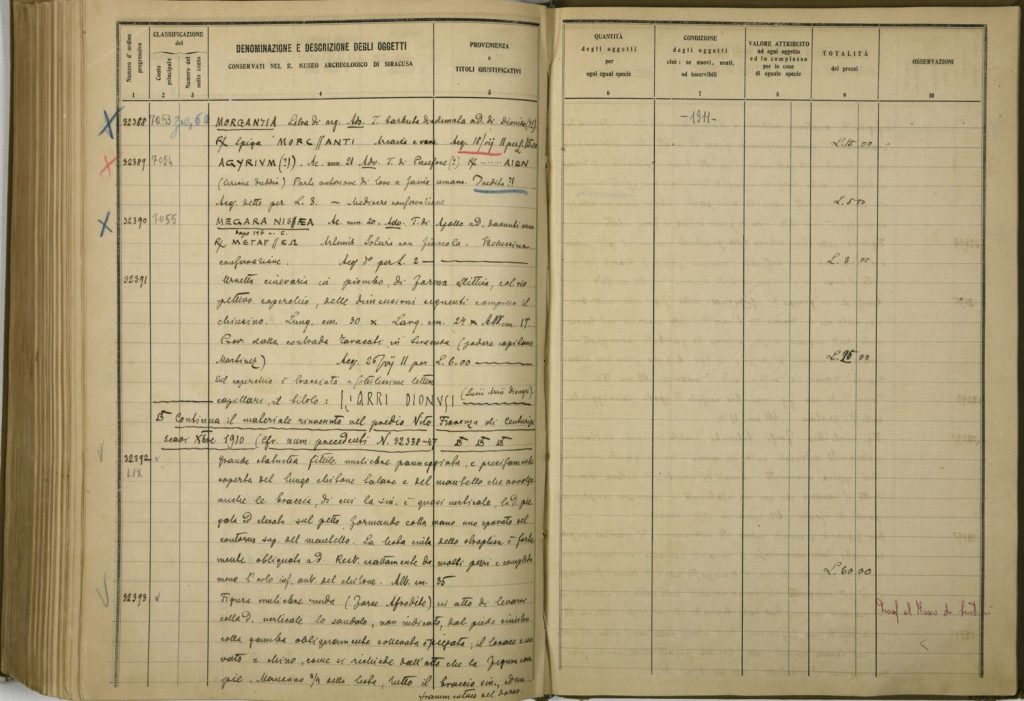 Numero d'ordine progressivo
CLASSIFICAZIONE
del
Conto principale
Numero del sotto conto
DENOMINAZIONE E DESCRIZIONE DEGLI OGGETTI
CONSERVATI NEL R. MUSEO ARCHEOLOGICO DI SIRACUSA
PROVENIENZA
e
TITOLI GIUSTIFICATIVI
QUANTITÀ
degli oggetti
per
ogni egual specie
CONDIZIONE
degli oggetti
cioè: se nuovi, usati,
od inservibili
VALORE ATTRIBUITO
ad ogni oggetto
ed in complesso
per le cose
di eguale specie
TOTALITÀ
dei prezzi
OSSERVAZIONI
1 2 3 4 5 6 7 8 9 10
32388 7053 MORGANTIA Litra di arg. Adv. T. barbuta diademata a D.
R/ Spiga MORG//ANTI Acq. 18/VII 11 per L. 15.00
-1911-
L. 15 00
32389 7054 AGYRIUM (?!) Ae. mm. 21 Adv. T. di Persefone (?) R/ ........ AION
Parte anteriore di toro a faccia umana. Inedita ?!
Acq. detto per L. 3. – Mediocre conservazione
L. 5 00
32390 7055 MEGARA NISAEA Ae. mm. 20. Adv. T. di Apollo a D, davanti arco
R/ Artemis con fiaccola. Bellissima
conservazione. Acq. d° per L. 2
L. 3 00
32391 Urnetta cineraria in piombo, di forma ellittica, col ris
pettivo coperchio, delle dimensioni seguenti compreso il
chiusino. Lung. cm. 30 x Larg. cm. 24 x Alt. cm. 17.
Prov. dalla contrada in Siracusa (podere capitano
Martinez) Acq. 25/VII 11 per L. 6.00
L. 25 00
Sul coperchio è tracciato a sottilissime lettere
capillari, il titolo: L. ARRI DIONYSI
Continua il materiale rinvenuto nel predio Vito Fiorenza di Centuripe
scavi Xbre 1910 (Cfr. num. precedenti N. 32338-47
32392
LIX
Grande statuetta fittile muliebre panneggiata, e precisamente
coperta del lungo chitone talare e del mantello che avvolge
anche le braccia, di cui la sin. è quasi verticale, la D. pie
gata ed elevata sul petto, formando colla mano uno sporto nel
contorno sup. del mantello. La testa cinta dello stephane è forte
mente obliquata a D. Rest. esattamente da molti pezzi e completa
meno l'orlo inf. ant. del chitone. Alt. cm. 35
L. 60 00
32393 Figura muliebre nuda (Forse Afrodite) in atto di levarsi
colla D. verticale lo sandalo, non indicato, dal piede sinistro
colla gamba obliquamente sollevata e piegata; il torace è cur
vato e chino, come si richiede dall'atto che la figura com
pie. Mancano 3/4 della testa, tutto il braccio sin.,
frammentino del dorso.